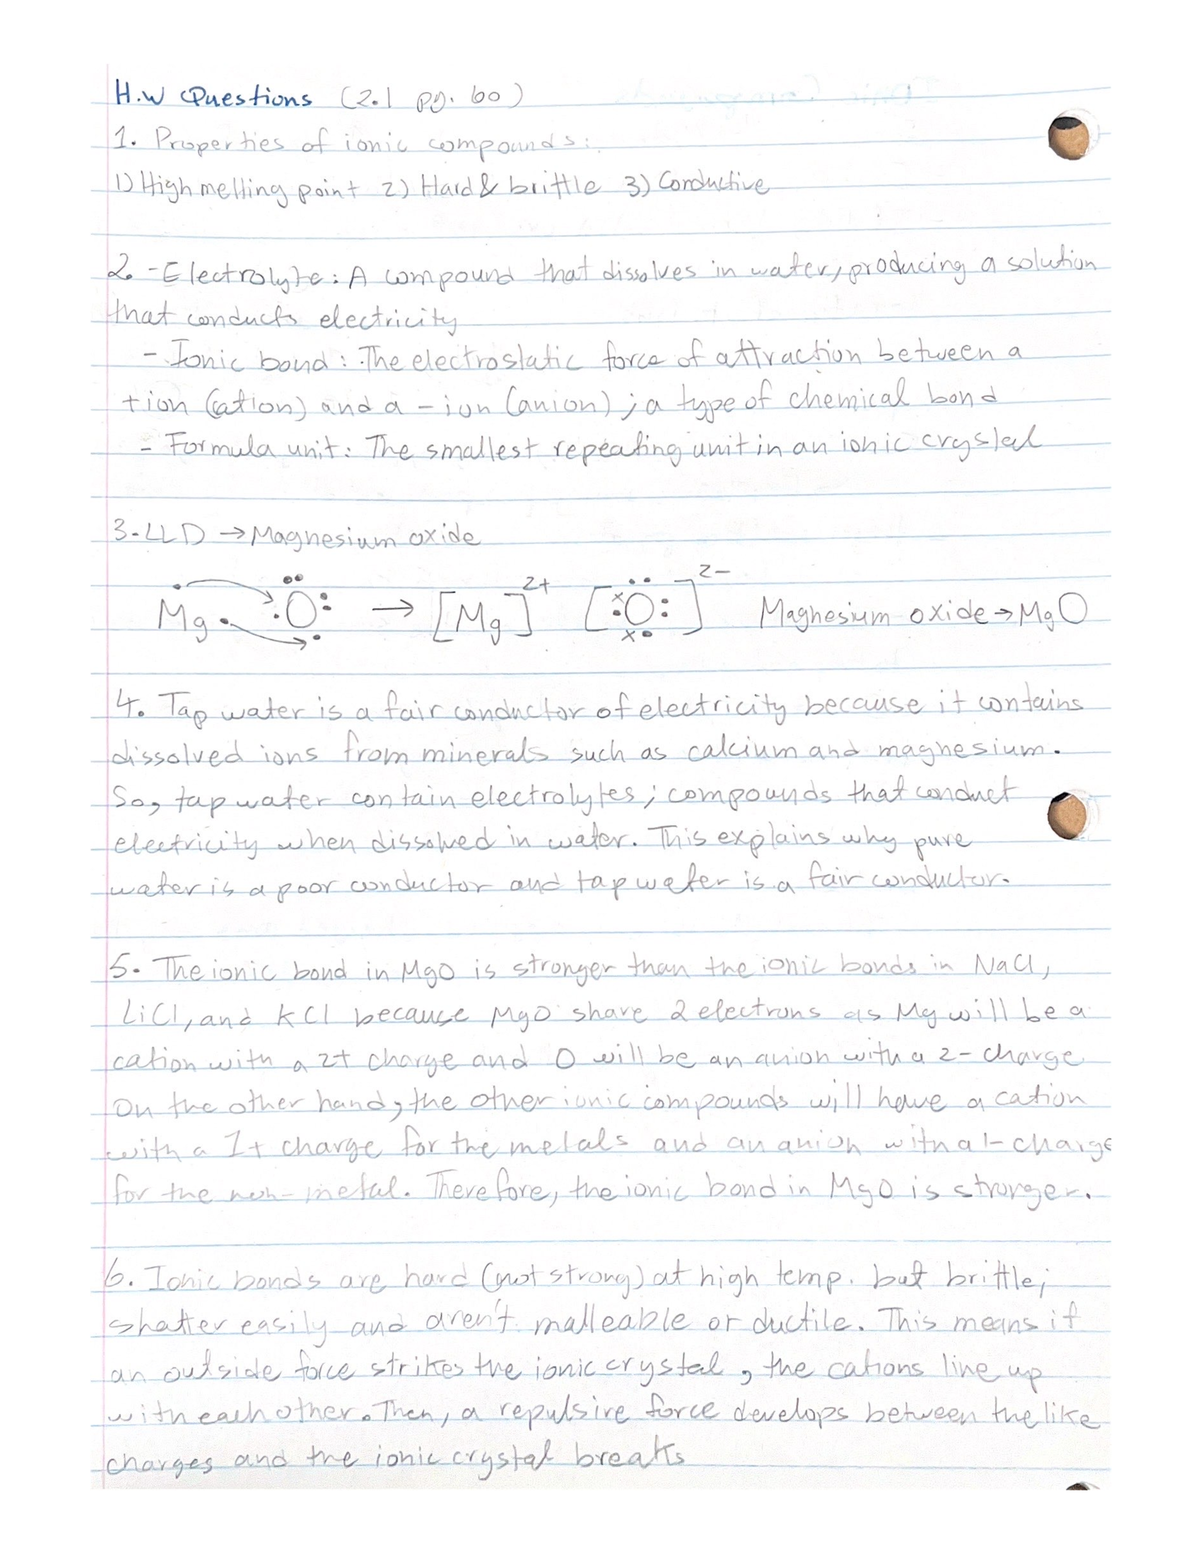 H.W Questions (2.1 pg. 60)
1. Properties of ionic compounds:
1) High melting point 2) Hard & brittle 3) Conductive
2 - Electrolyte: A compound that dissolves in water, producing a solution
that conducts electricity
- Ionic bond: The electrostatic force of attraction between a
+ ion (cation) and a - ion (anion); a type of chemical bond
- Formula unit: The smallest repeating unit in an ionic crystal
3-LLD → Magnesium oxide
Mg O → [Mg]2+ [O]2- Magnesium oxide → MgO
4. Tap water is a fair conductor of electricity because it contains
dissolved ions from minerals such as calcium and magnesium.
So, tap water contain electrolytes; compounds that conduct
electricity when dissolved in water. This explains why pure
water is a poor conductor and tap water is a fair conductor.
5. The ionic bond in MgO is stronger than the ionic bonds in NaCl,
LiCl, and KCl because MgO share 2 electrons as Mg will be a
cation with a 2+ charge and O will be an anion with a 2- charge
On the other hand, the other ionic compounds will have a cation
with a 1+ charge for the metals and an anion with a 1- charge
for the non-metal. Therefore, the ionic bond in MgO is stronger.
6. Ionic bonds are hard (not strong) at high temp. but brittle;
shatter easily and aren't malleable or ductile. This means if
an outside force strikes the ionic crystal, the cations line up
with each other. Then, a repulsive force develops between the like
charges and the ionic crystal breaks